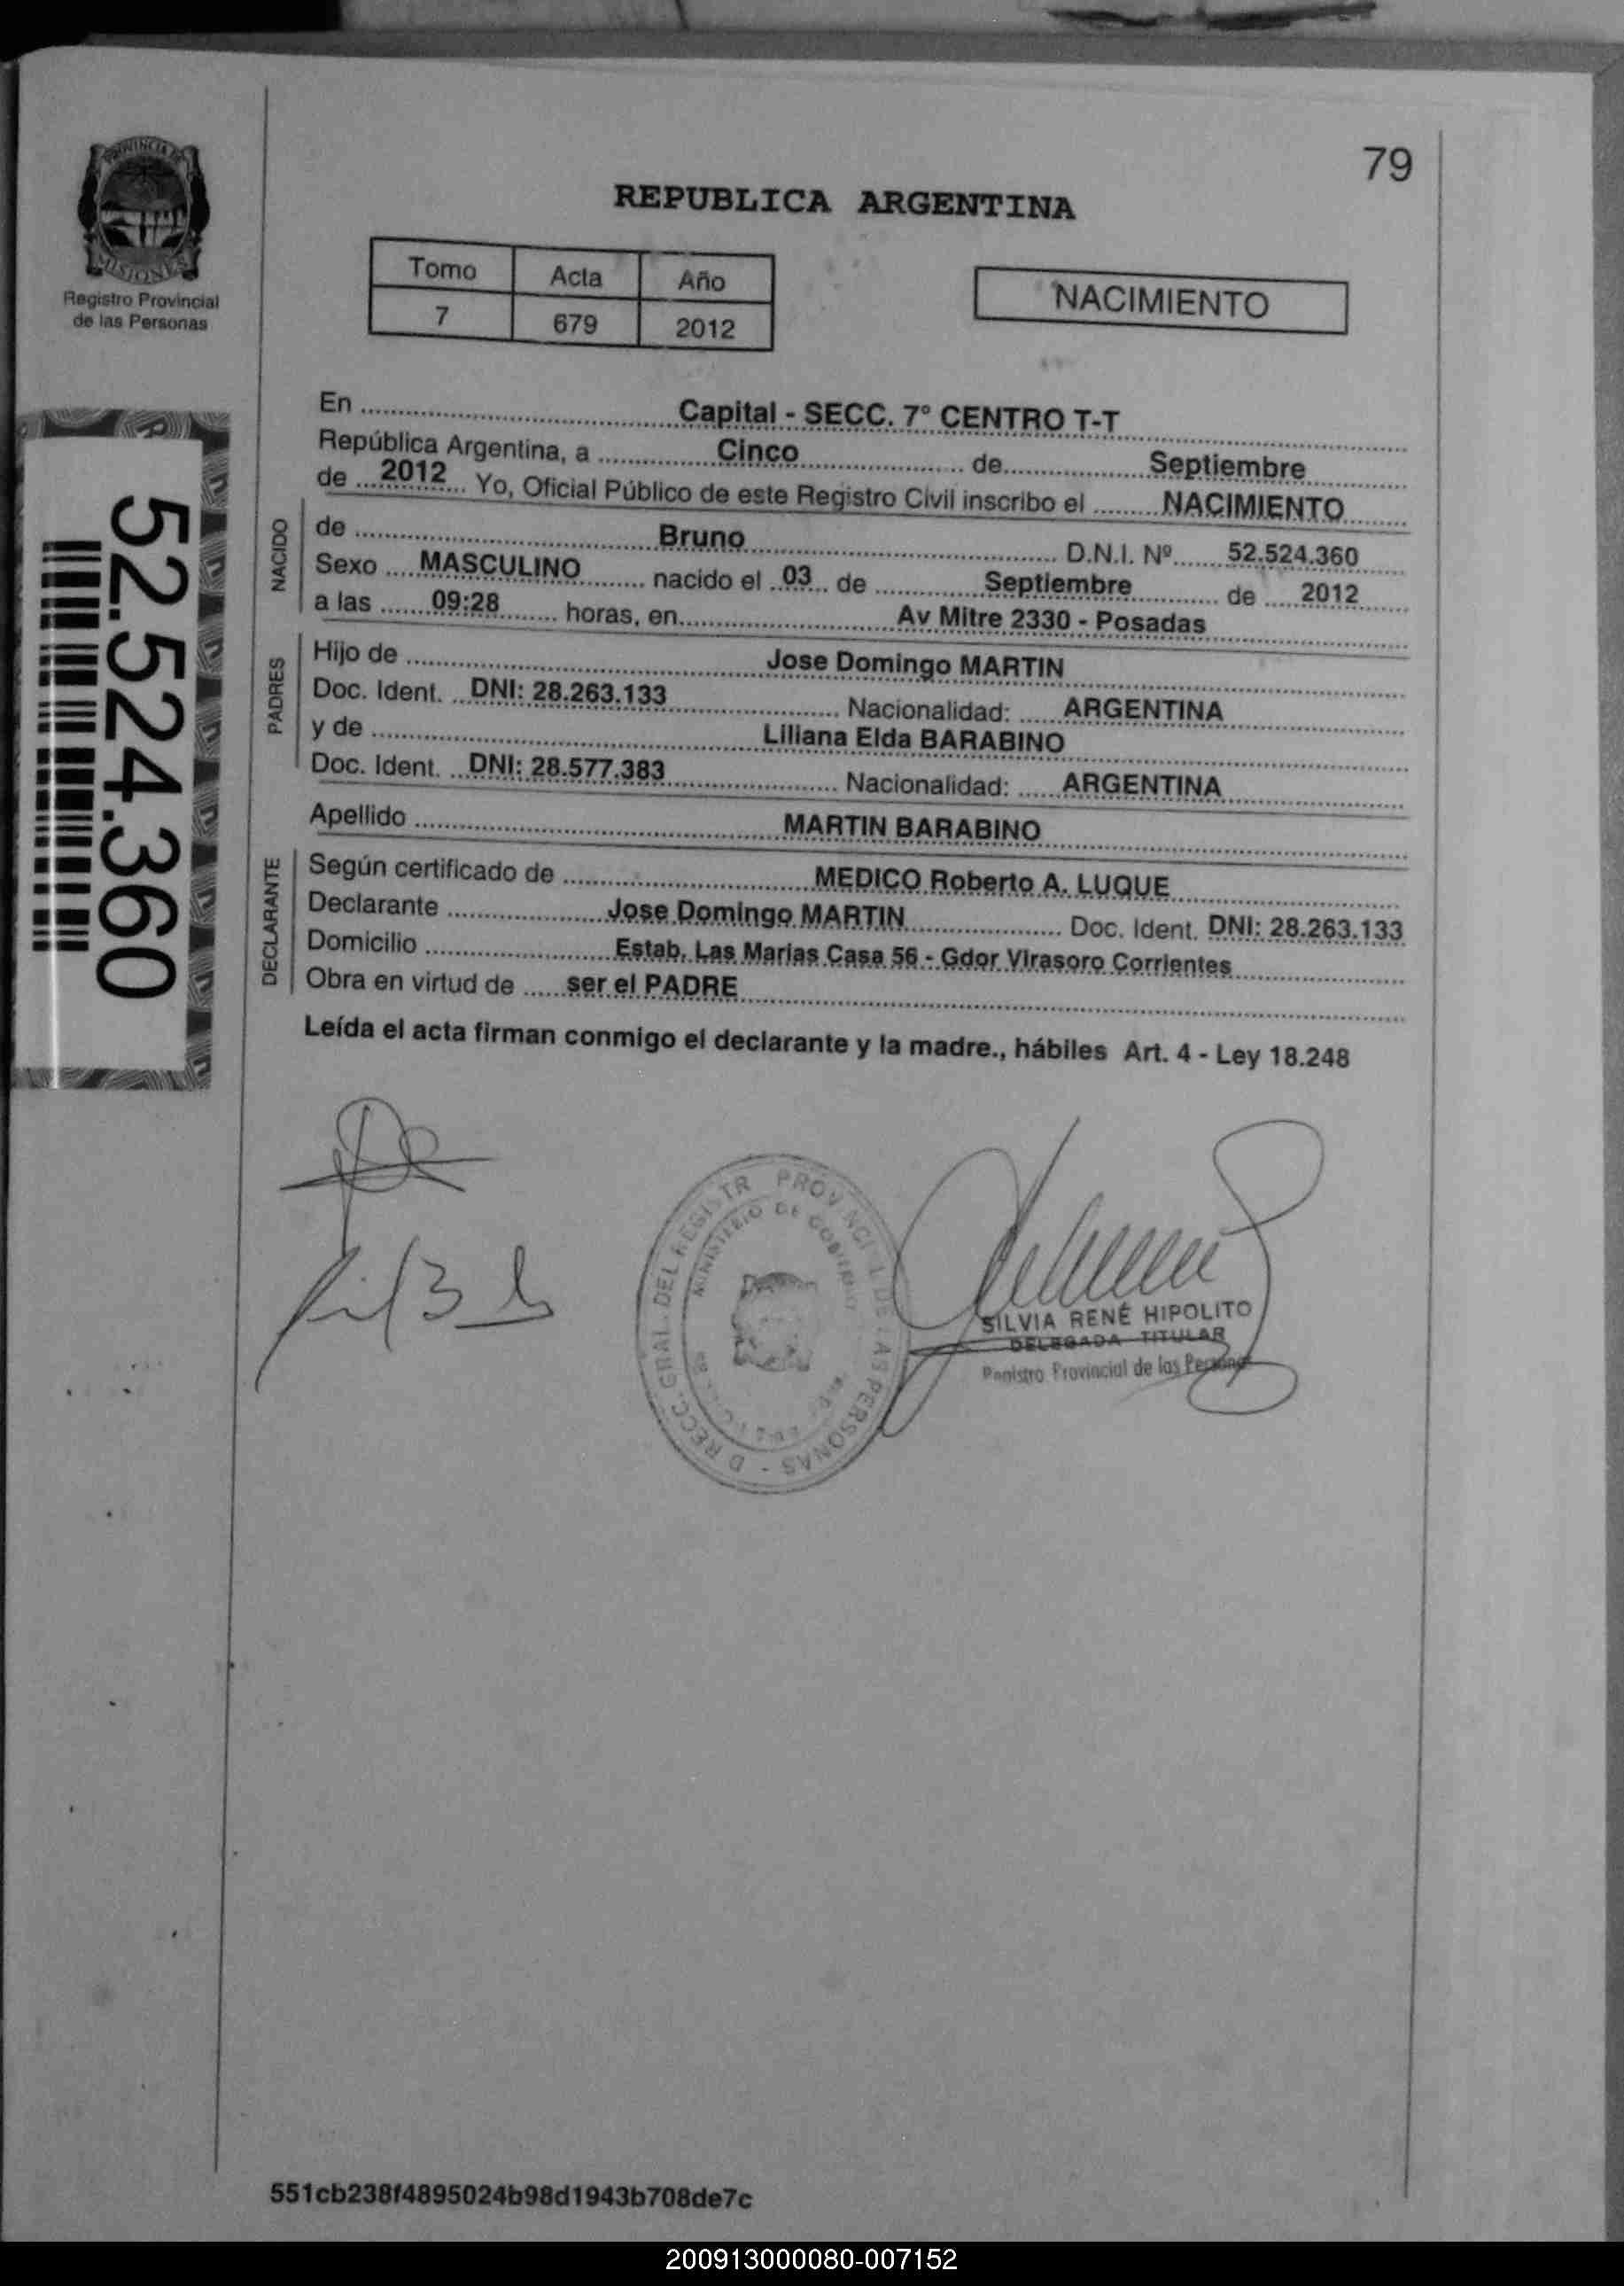 79
PROVINCIA DE
MISIONES
Registro Provincial
de las Personas
REPUBLICA ARGENTINA
Tomo Acta Año
7 679 2012
NACIMIENTO
52.524.360
En Capital - SECC. 7° CENTRO T-T
República Argentina, a Cinco de Septiembre
de 2012 Yo, Oficial Público de este Registro Civil inscribo el NACIMIENTO
NACIDO
de Bruno D.N.I. Nº 52.524.360
Sexo MASCULINO nacido el 03 de Septiembre de 2012
a las 09:28 horas, en Av Mitre 2330 - Posadas
PADRES
Hijo de Jose Domingo MARTIN
Doc. Ident. DNI: 28.263.133 Nacionalidad: ARGENTINA
y de Liliana Elda BARABINO
Doc. Ident. DNI: 28.577.383 Nacionalidad: ARGENTINA
Apellido MARTIN BARABINO
DECLARANTE
Según certificado de MEDICO Roberto A. LUQUE
Declarante Jose Domingo MARTIN Doc. Ident. DNI: 28.263.133
Domicilio Estab. Las Marias Casa 56 - Gdor Virasoro Corrientes
Obra en virtud de ser el PADRE
Leída el acta firman conmigo el declarante y la madre., hábiles Art. 4 - Ley 18.248
MINISTERIO DE
DE LAS PERSONAS
SILVIA RENÉ HIPOLITO
DELEGADA TITULAR
Registro Provincial de las Personas
551cb238f4895024b98d1943b708de7c
200913000080-007152